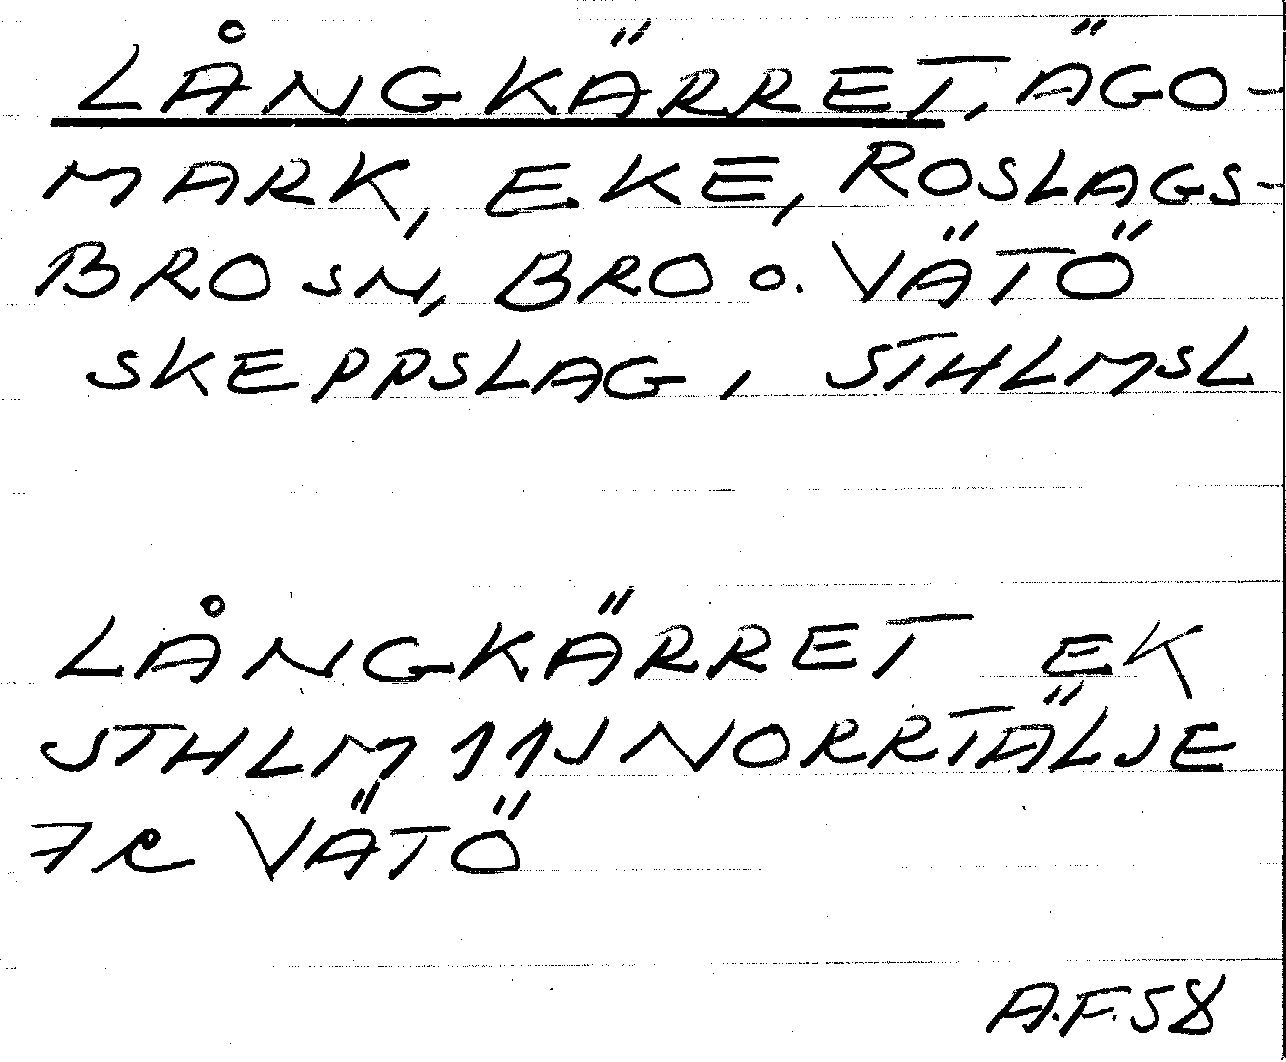 LÅNGKÄRRET, ÄGO-
MARK, EKE, ROSLAGS-
BRO SN, BRO O. VÄTÖ
SKEPPSLAG, STHLMSL
LÅNGKÄRRET EK
STHLM 11J NORRTÄLJE
7c VÄTÖ
A.F. 58